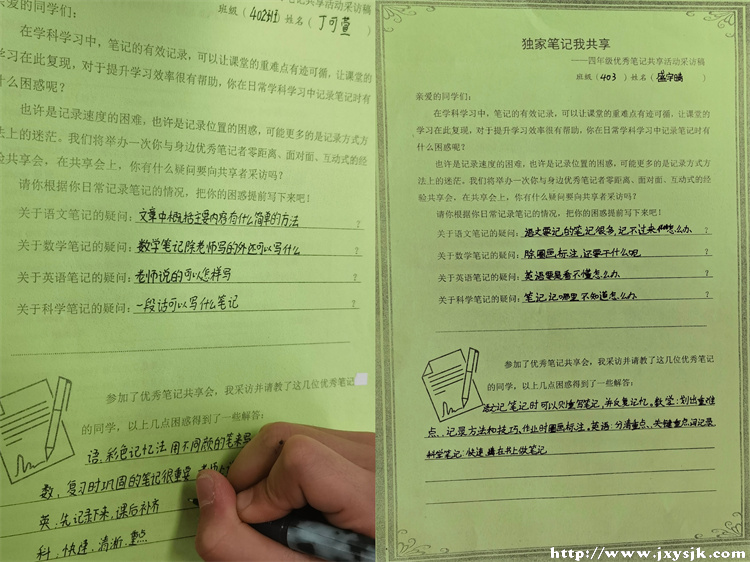 亲爱的同学们：
笔记共享活动采访稿
班级（402班）姓名（丁可萱）
在学科学习中，笔记的有效记录，可以让课堂的重难点有迹可循，让课堂的
学习在此复现，对于提升学习效率很有帮助，你在日常学科学习中记录笔记时有
什么困惑呢？
也许是记录速度的困难，也许是记录位置的困惑，可能更多的是记录方式方
法上的迷茫。我们将举办一次你与身边优秀笔记者零距离、面对面、互动式的经
验共享会，在共享会上，你有什么疑问要向共享者采访吗？
请你根据你日常记录笔记的情况，把你的困惑提前写下来吧！
关于语文笔记的疑问：文章中概括主要内容有什么简单的方法？
关于数学笔记的疑问：数学笔记除老师写的外还可以写什么？
关于英语笔记的疑问：老师说的可以怎样写？
关于科学笔记的疑问：一段话可以写什么笔记？
参加了优秀笔记共享会，我采访并请教了这几位优秀笔记
的同学，以上几点困惑得到了一些解答：
语，彩色记忆法 用不同颜色的笔来
数，复习时巩固的笔记很重要
英：先记录下来，课后补充
科，快速，清晰，重点
独家笔记我共享
——四年级优秀笔记共享活动采访稿
班级（403）姓名（盛宇晴）
亲爱的同学们：
在学科学习中，笔记的有效记录，可以让课堂的重难点有迹可循，让课堂的
学习在此复现，对于提升学习效率很有帮助，你在日常学科学习中记录笔记时有
什么困惑呢？
也许是记录速度的困难，也许是记录位置的困惑，可能更多的是记录方式方
法上的迷茫。我们将举办一次你与身边优秀笔记者零距离、面对面、互动式的经
验共享会，在共享会上，你有什么疑问要向共享者采访吗？
请你根据你日常记录笔记的情况，把你的困惑提前写下来吧！
关于语文笔记的疑问：语文要记的笔记很多，记不过来怎么办、？
关于数学笔记的疑问：除圈画，标注，还要干什么吧？
关于英语笔记的疑问：英语要是看不懂怎么办？
关于科学笔记的疑问：笔记，记哪里 不知道怎么办．？
参加了优秀笔记共享会，我采访并请教了这几位优秀笔记
的同学，以上几点困惑得到了一些解答：
语文记笔记时可以侧重写笔记，并反复记忆，数学：划出重难
点、记录方法和技巧，作业时圈画标注，英语：分清重点、关键重点词记录
科学笔记：快速，再在书上做笔记
http://www.jxysjk.com/